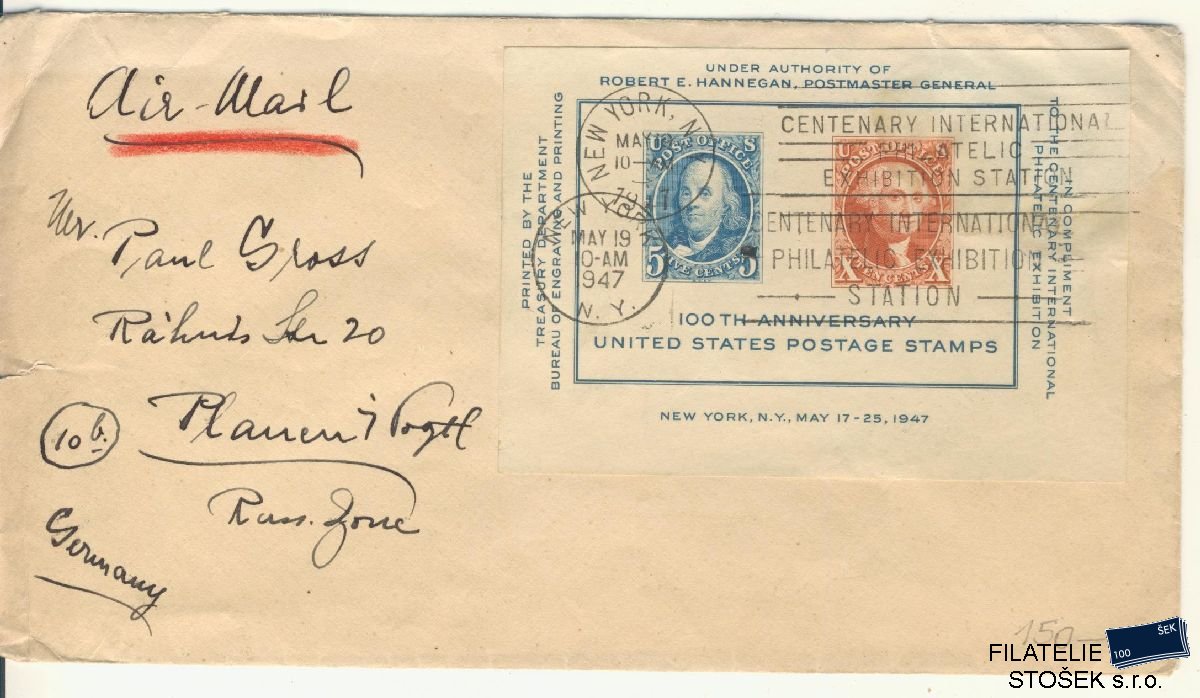 Air-Mail
Mr. Paul Gross
20
10 b. Plauen i Vogtl
Russ. Zone
Germany
UNDER AUTHORITY OF
ROBERT E. HANNEGAN, POSTMASTER GENERAL
PRINTED BY THE
TREASURY DEPARTMENT
BUREAU OF ENGRAVING AND PRINTING
IN COMPLIMENT
TO THE CENTENARY INTERNATIONAL
PHILATELIC EXHIBITION
U S
POST OFFICE
5 FIVE CENTS 5
U S
POST OFFICE
X TEN CENTS X
NEW YORK, N.
MAY 19
10-AM
CENTENARY INTERNATIONAL
PHILATELIC
EXHIBITION STATION
NEW YORK
MAY 19
10-AM
1947
N. Y.
CENTENARY INTERNATIONAL
PHILATELIC EXHIBITION
STATION
100TH ANNIVERSARY
UNITED STATES POSTAGE STAMPS
NEW YORK, N.Y., MAY 17-25, 1947
150-
FILATELIE
STOŠEK s.r.o.
100 ŠEK